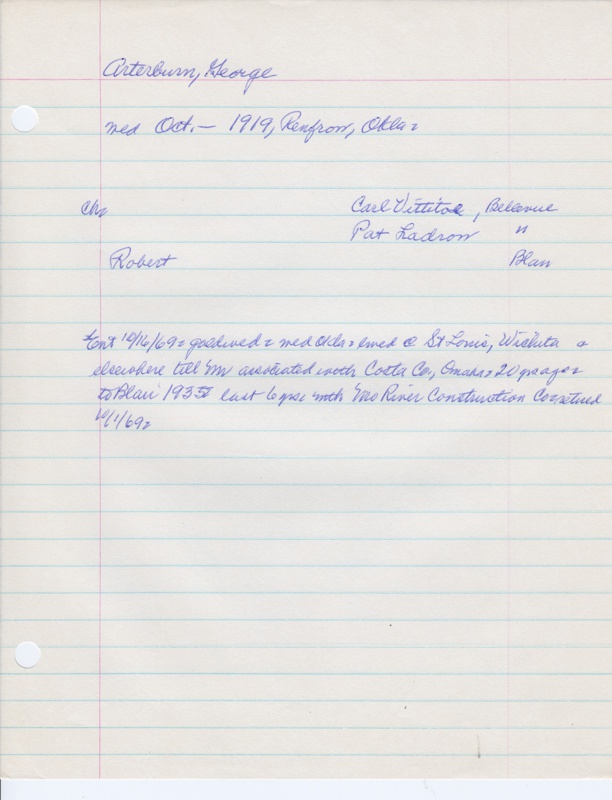 Arterburn, George
wed Oct. — 1919, Renfrow, Okla =
ch=
Carl Vittitoe, Bellevue
Pat Ladrow "
Robert Blair
Ent 10/16/69 = goldwed = wed Okla = lived @ St Louis, Wichita &
elsewhere till Mr associated with Costa Co, Omaha = 20 yrs ago =
to Blair 1935 = last 6 yrs with Mo River Construction Co = retired
10/1/69 =